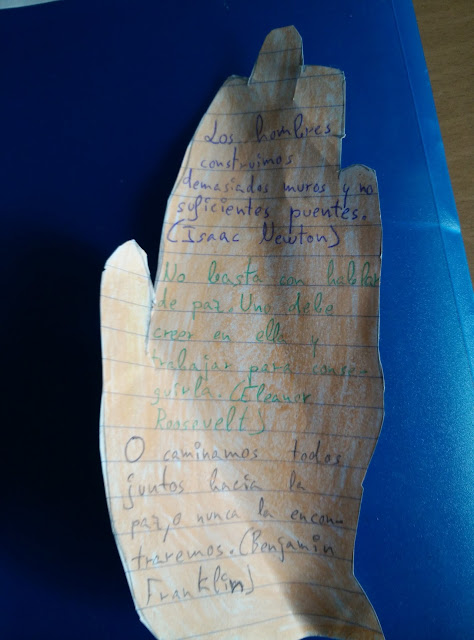 Los hombres
construimos
demasiados muros y no
suficientes puentes.
(Isaac Newton)
No basta con hablar
de paz. Uno debe
creer en ella y
trabajar para conse-
guirla. (Eleanor
Roosevelt)
O caminamos todos
juntos hacia la
paz, o nunca la encon-
traremos. (Benjamin
Franklin)